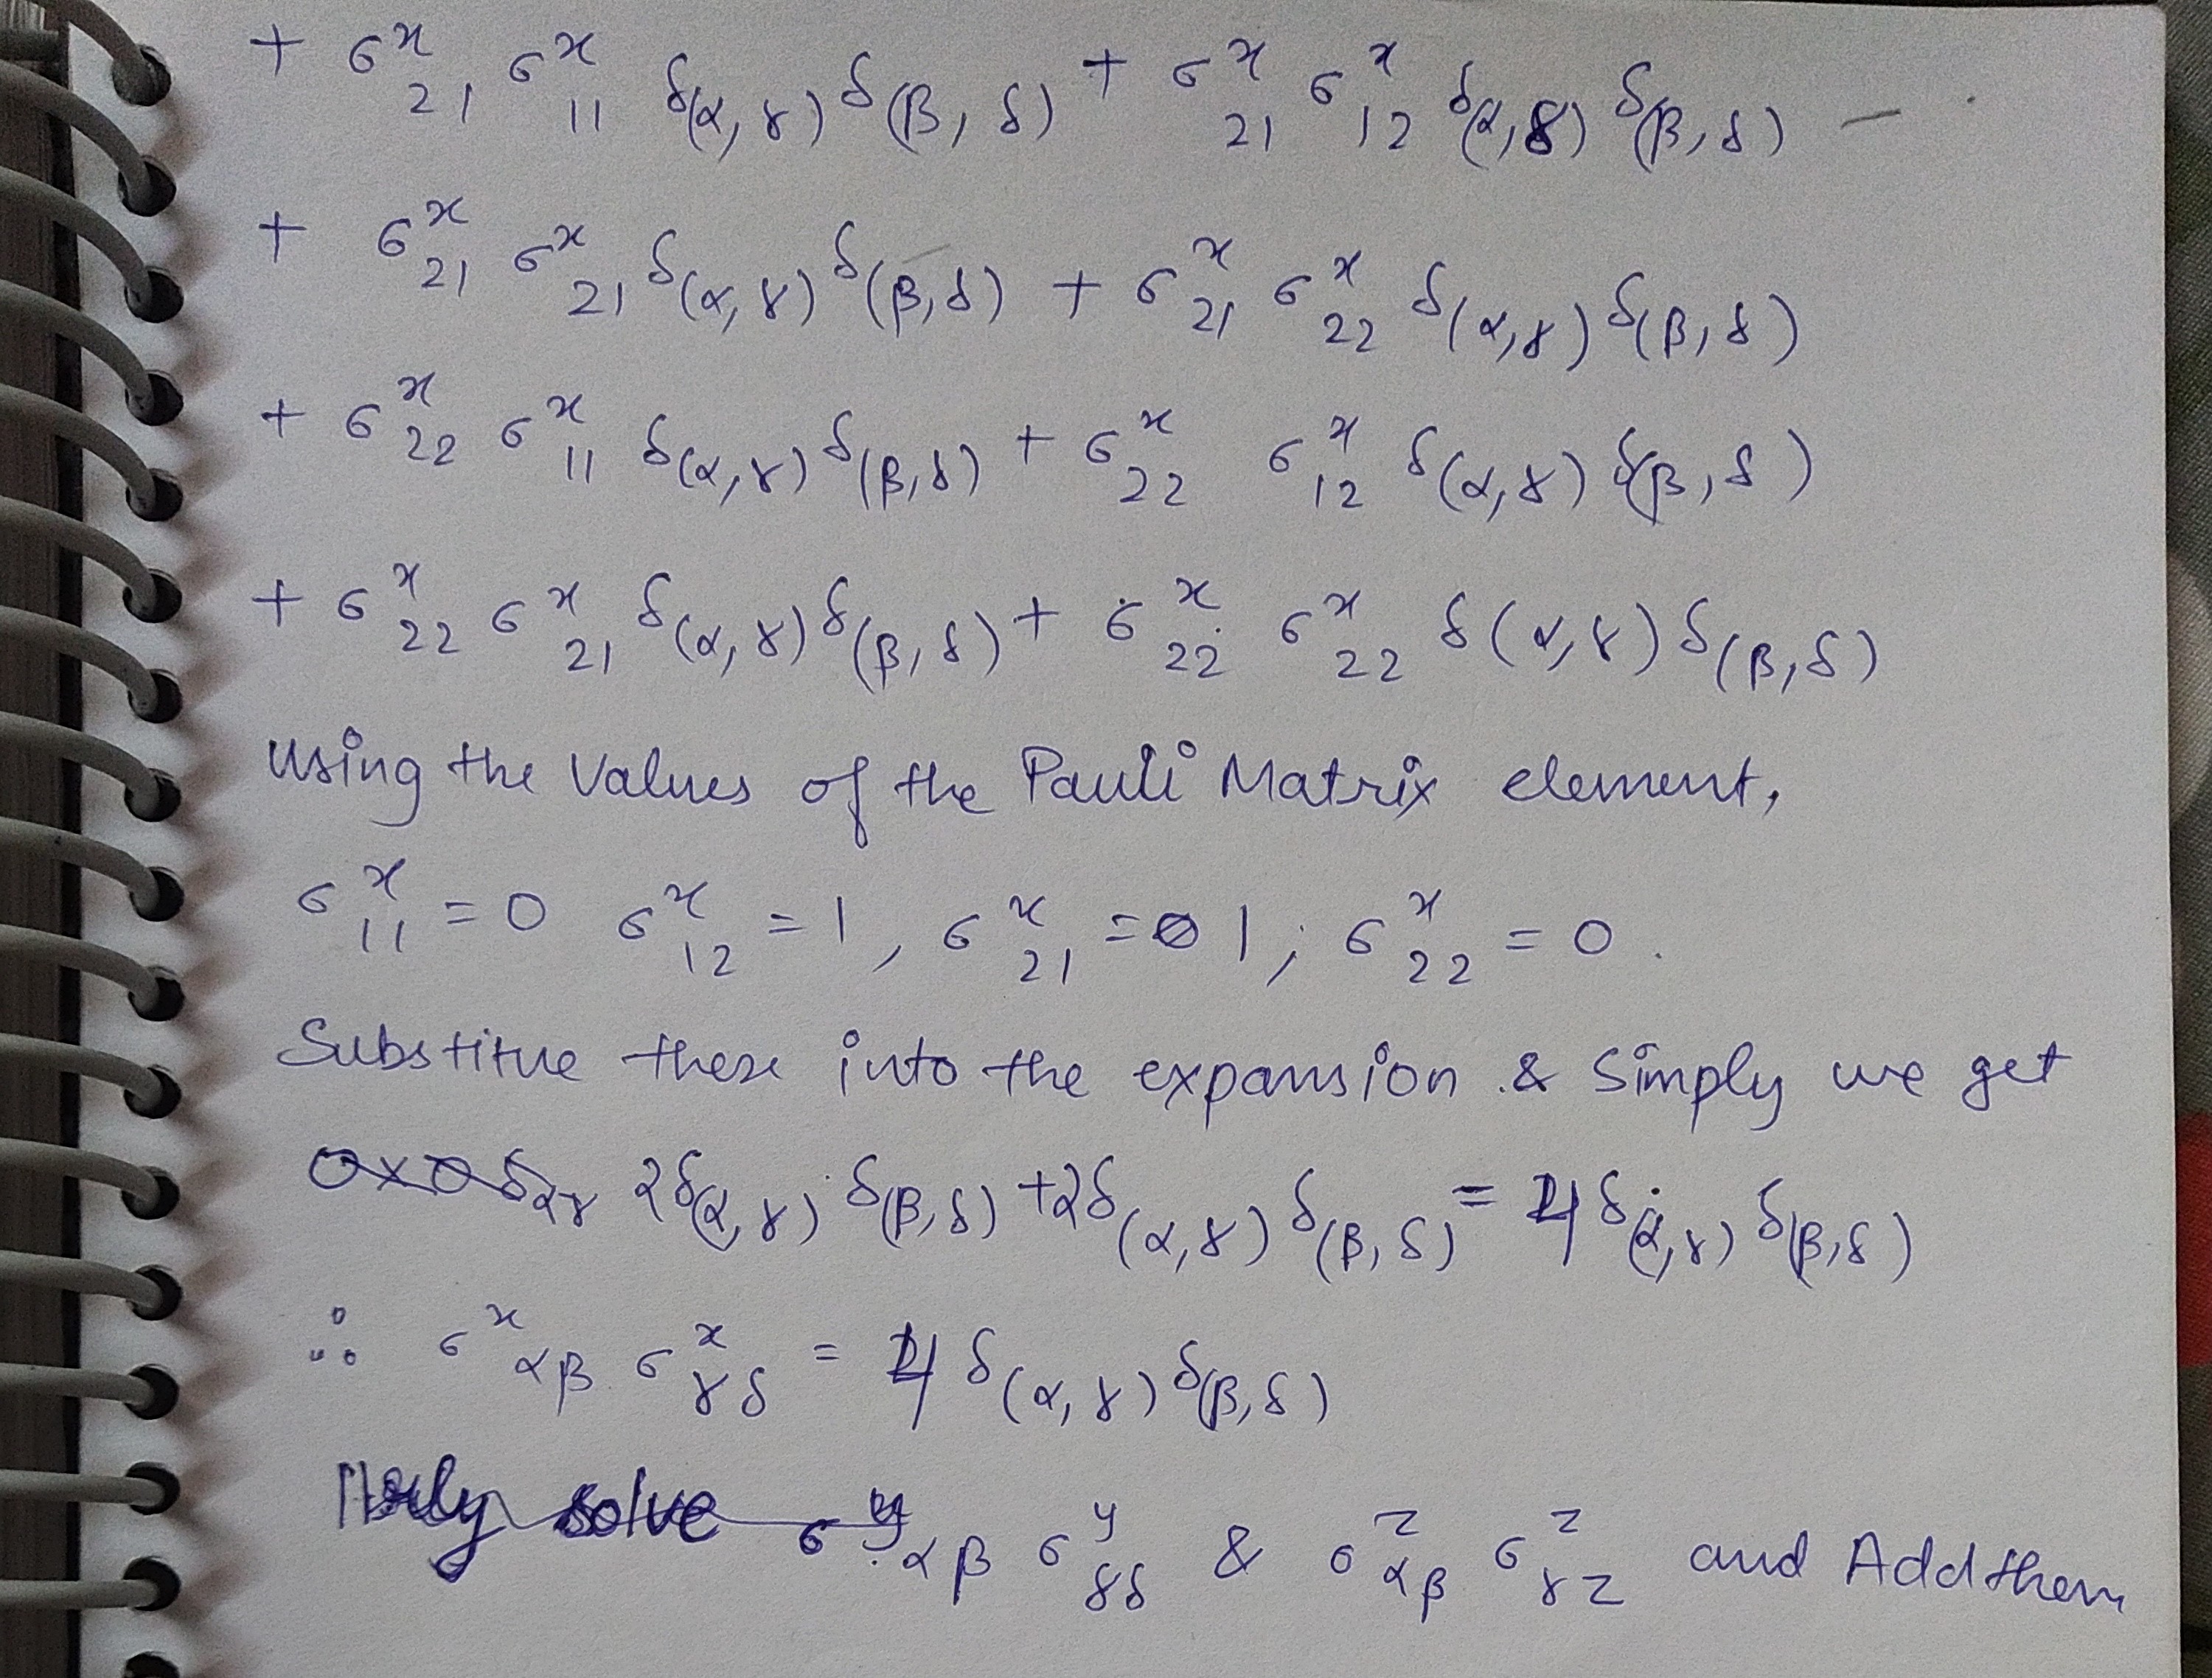 + σ^x_21 σ^x_11 δ(α,γ) δ(β,δ) + σ^x_21 σ^x_12 δ(α,γ) δ(β,δ) –
+ σ^x_21 σ^x_21 δ(α,γ) δ(β,δ) + σ^x_21 σ^x_22 δ(α,γ) δ(β,δ)
+ σ^x_22 σ^x_11 δ(α,γ) δ(β,δ) + σ^x_22 σ^x_12 δ(α,γ) δ(β,δ)
+ σ^x_22 σ^x_21 δ(α,γ) δ(β,δ) + σ^x_22 σ^x_22 δ(α,γ) δ(β,δ)
Using the Values of the Pauli Matrix element,
σ^x_11 = 0 σ^x_12 = 1, σ^x_21 = 1; σ^x_22 = 0.
Substitue these into the expansion & Simply we get
2δ(α,γ) δ(β,δ) + 2δ(α,γ) δ(β,δ) = 4 δ(α,γ) δ(β,δ)
∴ σ^x_αβ σ^x_γδ = 4 δ(α,γ) δ(β,δ)
solve σ^y_αβ σ^y_γδ & σ^z_αβ σ^z_γz and Add them